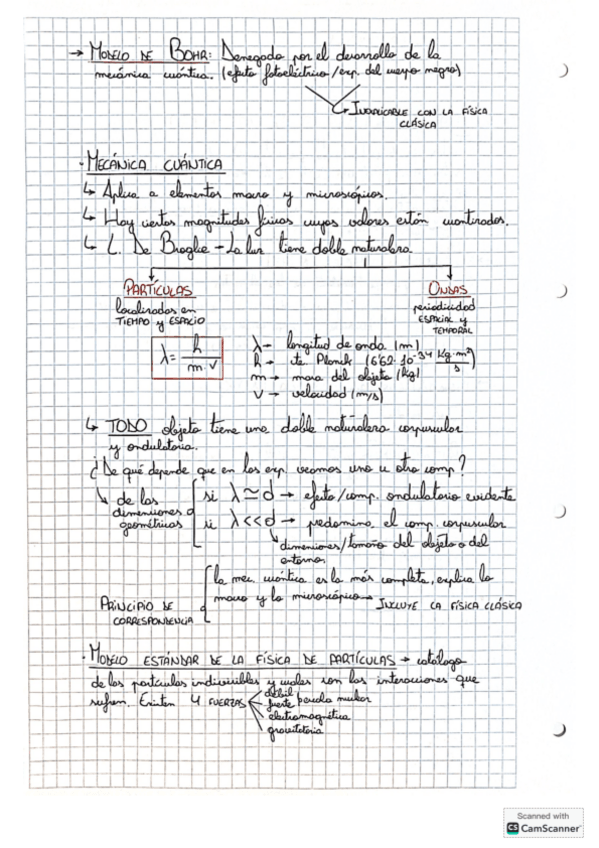 → MODELO DE BOHR: Denegado por el desarrollo de la
mecánica cuántica. (efecto fotoeléctrico/exp. del cuerpo negro)
↳ INEXPLICABLE CON LA FÍSICA
CLÁSICA
· MECÁNICA CUÁNTICA
↳ Aplica a elementos macro y microscópicos.
↳ Hay ciertas magnitudes físicas cuyos valores están cuantizados.
↳ L. De Broglie - La luz tiene doble naturaleza.
PARTÍCULAS
localizadas en
TIEMPO y ESPACIO
ONDAS
periodicidad
ESPACIAL y
TEMPORAL
λ = h / m·v
λ → longitud de onda (m)
h → cte. Planck (6'62·10^-34 Kg·m²/s)
m → masa del objeto (kg)
v → velocidad (m/s)
↳ TODO objeto tiene una doble naturaleza corpuscular
y ondulatoria.
¿De qué depende que en los exp. veamos uno u otro comp?
↳ de las
dimensiones d
geométricas
si λ≃d → efecto/comp. ondulatorio evidente
si λ<<d → predomina el comp. corpuscular
↳ dimensiones/tamaño del objeto o del
entorno.
PRINCIPIO DE
CORRESPONDENCIA
la mec. cuántica es la más completa, explica lo
macro y lo microscópico → INCLUYE LA FÍSICA CLÁSICA
· MODELO ESTÁNDAR DE LA FÍSICA DE PARTÍCULAS → catálogo
de las partículas indivisibles y cuales son las interacciones que
sufren. Existen 4 FUERZAS
débil
fuerte nuclear
electromagnética
gravitatoria
Scanned with
CS CamScanner